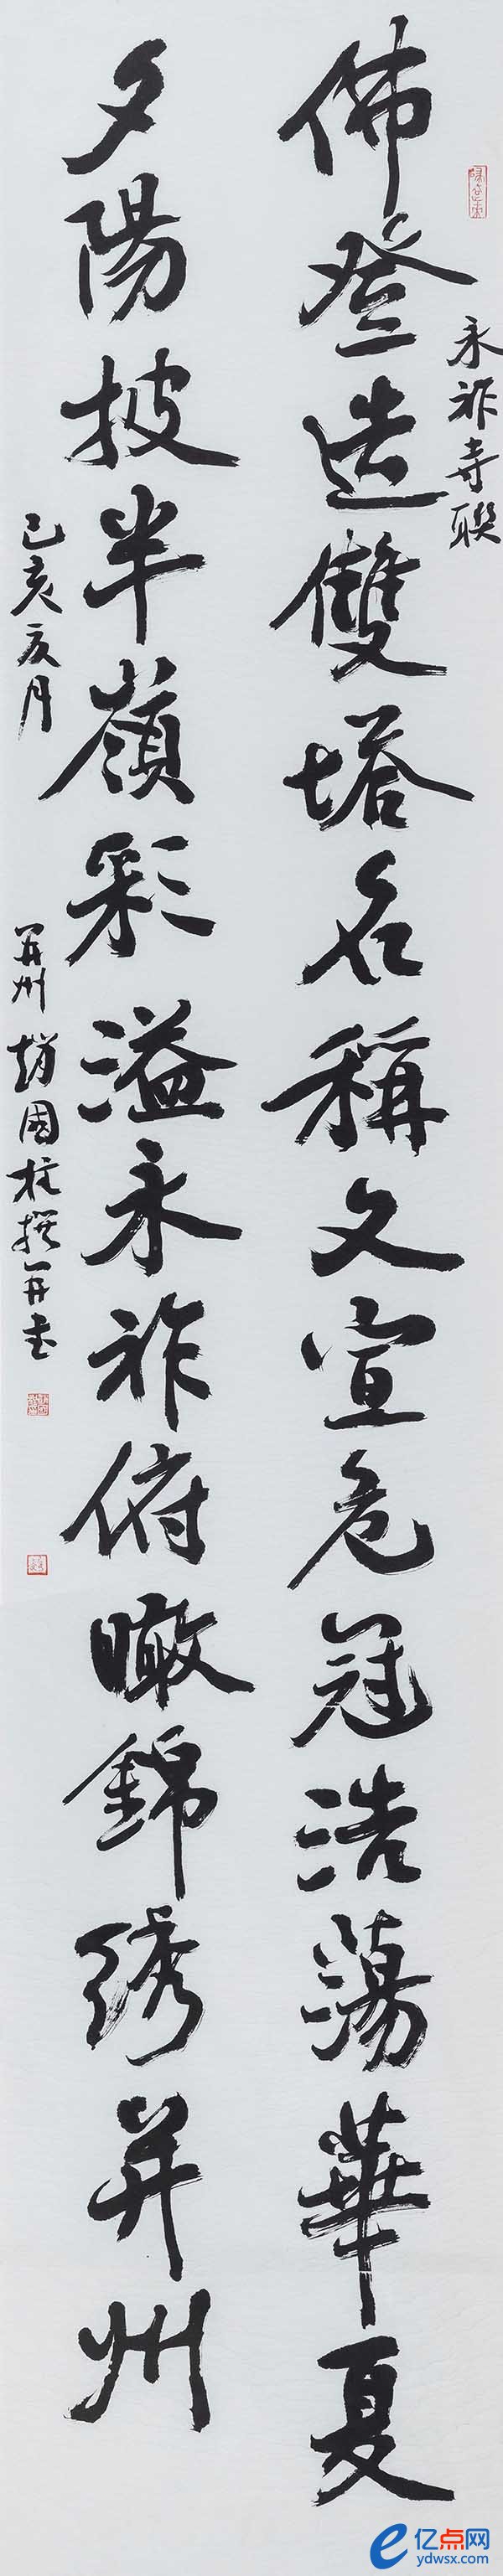 永祚寺聯
佛登造雙塔名稱文宣危冠浩蕩華夏
夕陽披半嶺彩溢永祚俯瞰錦绣并州
己亥夏月 并州趙國柱撰并书
亿点网
ydwsx.com